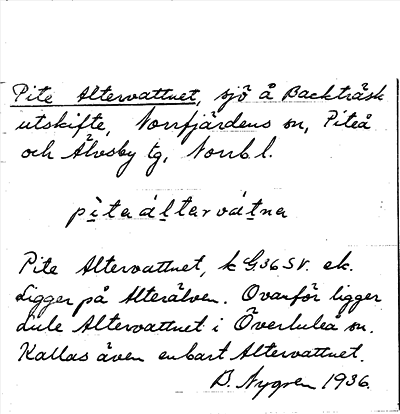 Pite Altervattnet, sjö å Backträsk
utskifte, Norrfjärdens sn, Piteå
och Älvsby tg, Norrb. l.
pìtaáltarvátna
Pite Altervattnet, k G.36.SV. ek.
Ligger på Alterälven. Ovanför ligger
Lule Altervattnet i Överluleå sn.
Kallas även enbart Altervattnet.
B. Nygren 1936.